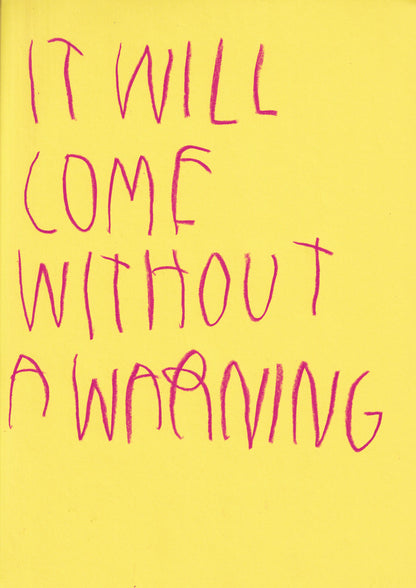 IT WILL
COME
WITHOUT
A WARNING